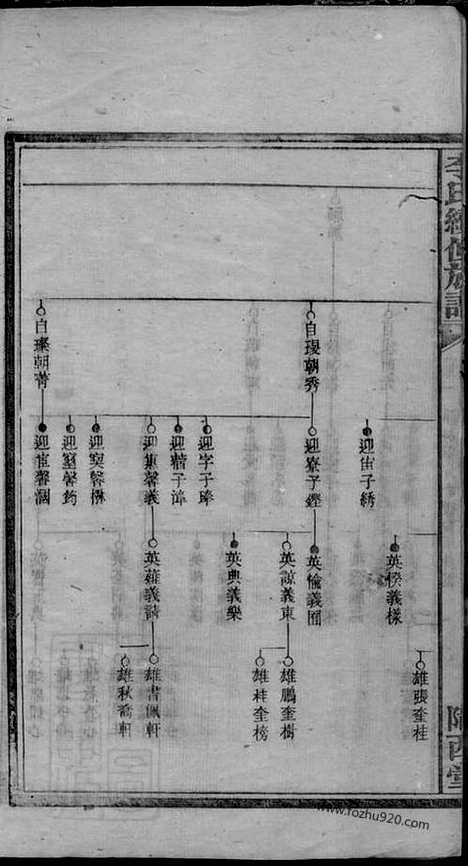 李氏續修族譜
隴西堂
自璟朝秀
自璨朝菁
迎宙子綉
迎寮子鏗
迎字子琫
迎楷子漳
迎集馨義
迎突馨楙
迎窒馨鈞
迎宦馨涸
英偰義樣
英倫義囿
英諒義東
英典義樂
英蘿義詩
雄張奎桂
雄鵬奎樹
雄桂奎榜
雄書佩軒
雄秋喬軒
www.fozhu920.com